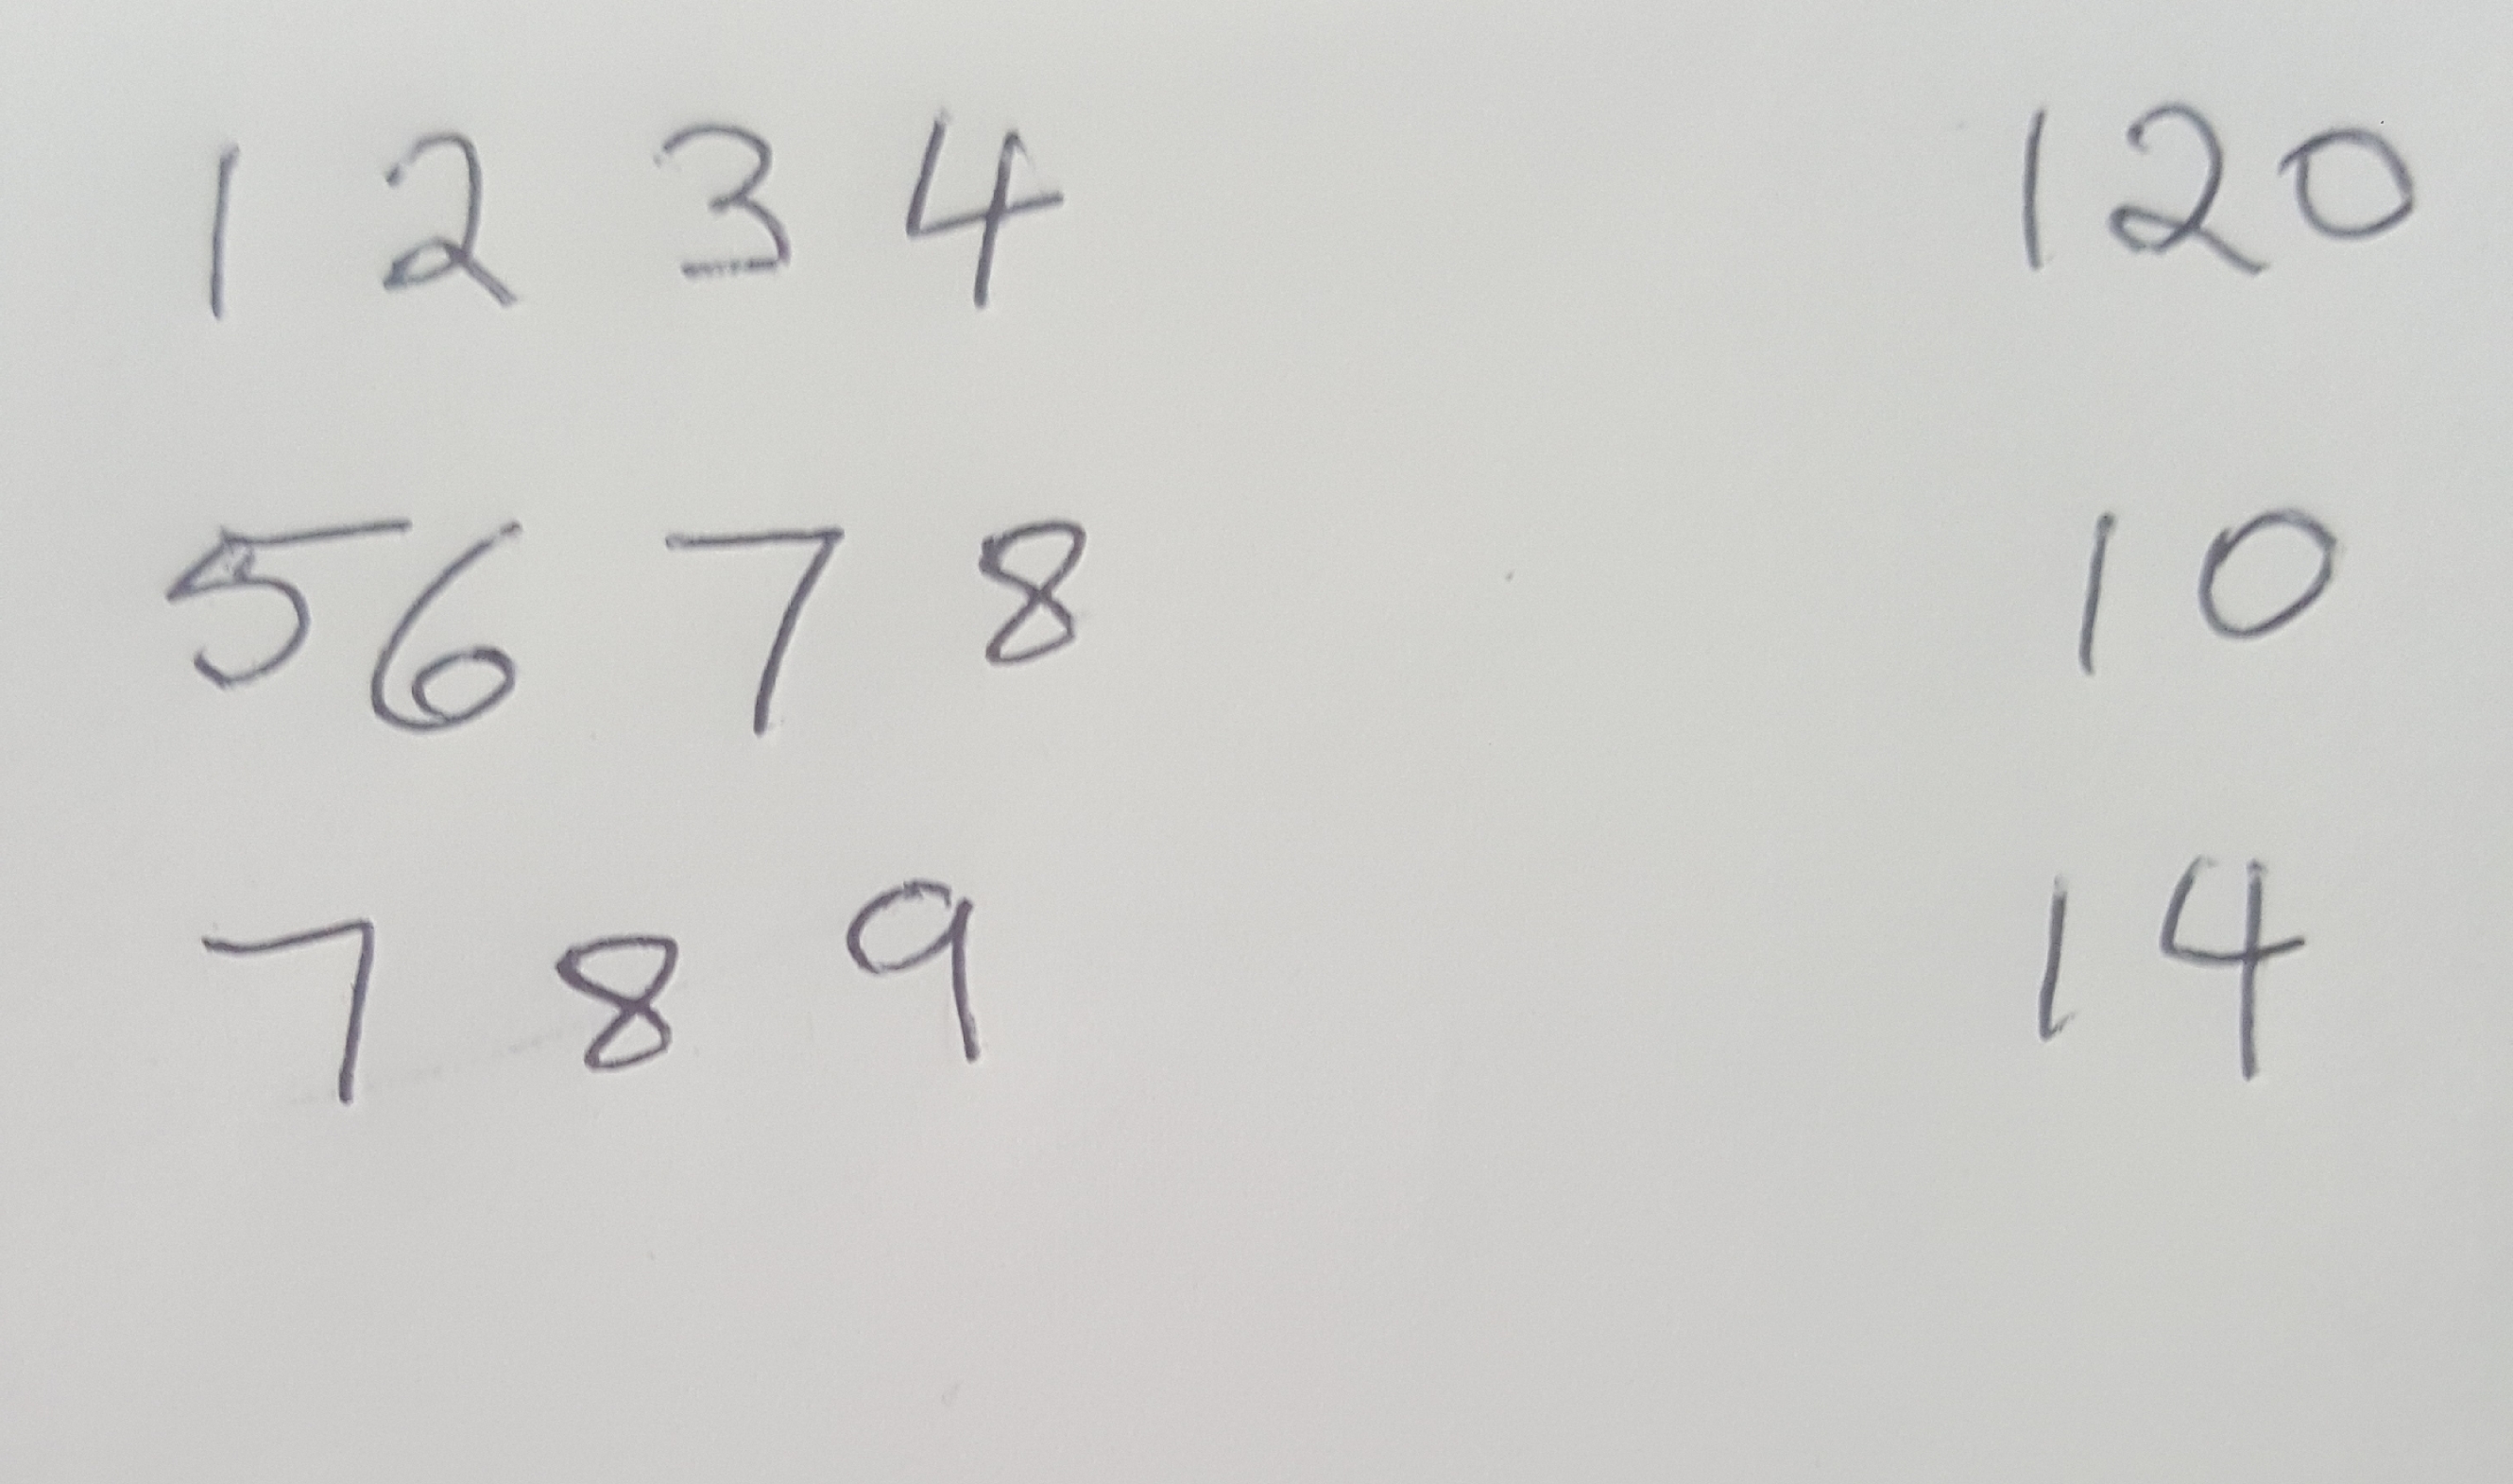 1 2 3 4 120
5 6 7 8 10
7 8 9 14